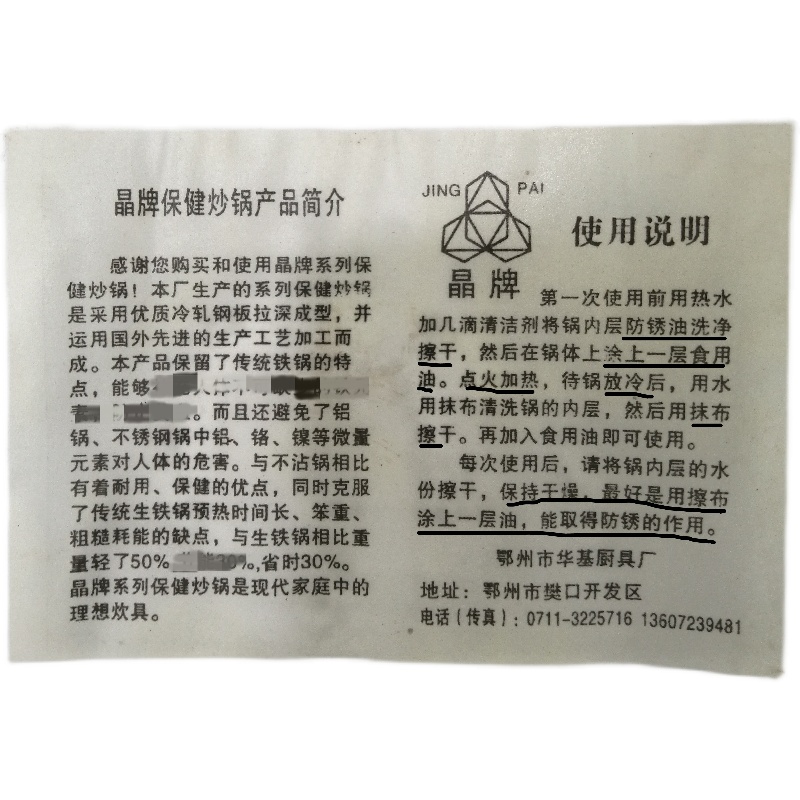 晶牌保健炒锅产品简介
感谢您购买和使用晶牌系列保
健炒锅！本厂生产的系列保健炒锅
是采用优质冷轧钢板拉深成型，并
运用国外先进的生产工艺加工而
成。本产品保留了传统铁锅的特
点，能够
。而且还避免了铝
锅、不锈钢锅中铝、铬、镍等微量
元素对人体的危害。与不沾锅相比
有着耐用、保健的优点，同时克服
了传统生铁锅预热时间长、笨重、
粗糙耗能的缺点，与生铁锅相比重
量轻了50%，省时30%。
晶牌系列保健炒锅是现代家庭中的
理想炊具。
JING PAI
晶牌
使用说明
第一次使用前用热水
加几滴清洁剂将锅内层防锈油洗净
擦干，然后在锅体上涂上一层食用
油。点火加热，待锅放冷后，用水
用抹布清洗锅的内层，然后用抹布
擦干。再加入食用油即可使用。
每次使用后，请将锅内层的水
份擦干，保持干燥，最好是用擦布
涂上一层油，能取得防锈的作用。
鄂州市华基厨具厂
地址：鄂州市樊口开发区
电话（传真）：0711-3225716 13607239481